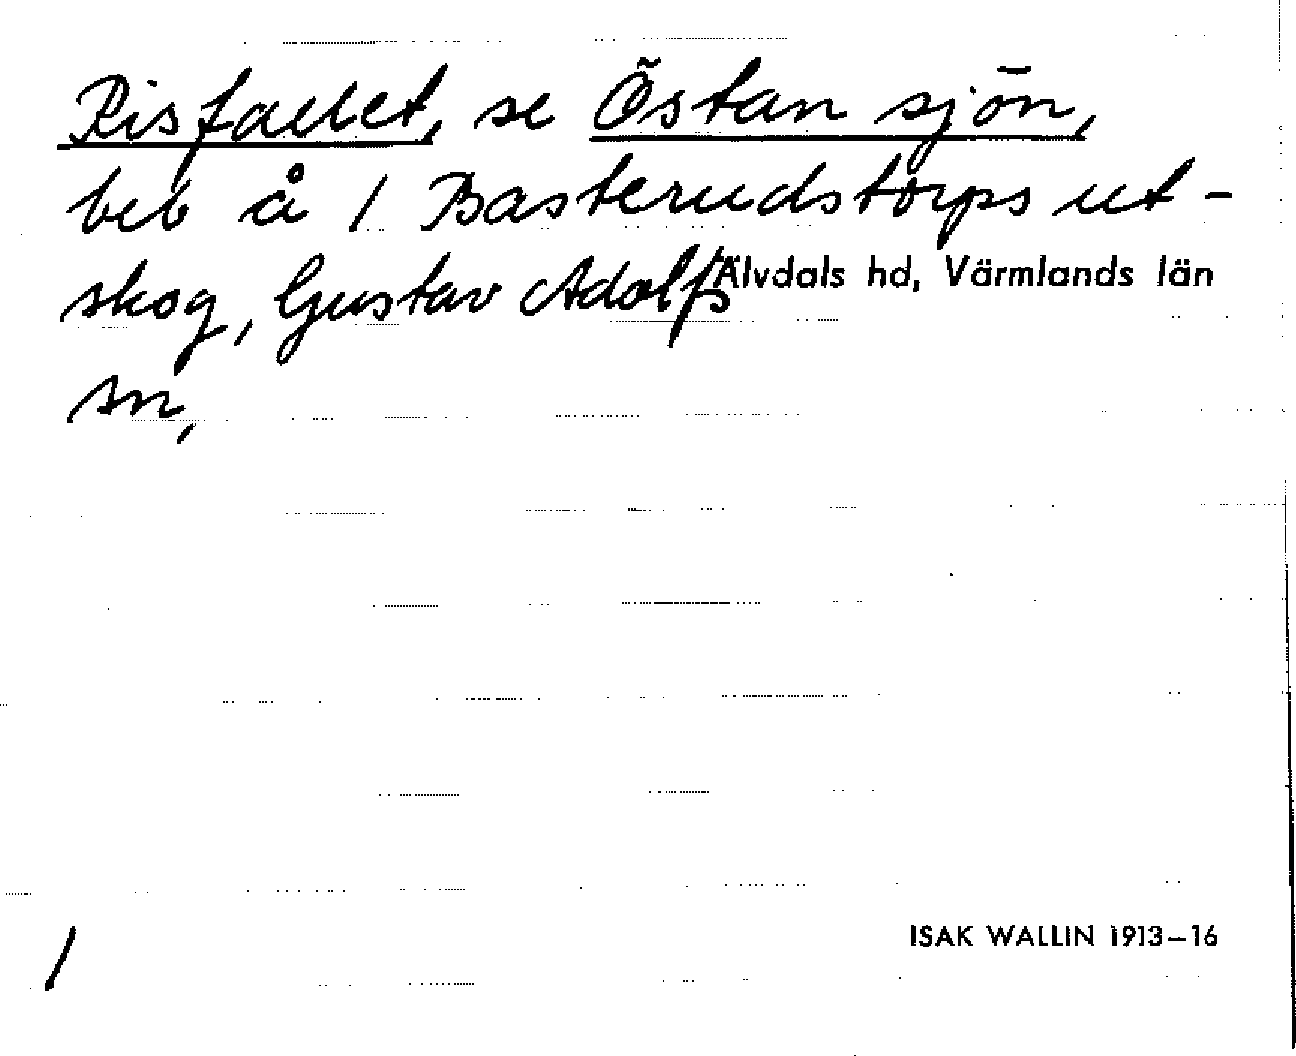 Risfallet, se Östan sjön,
beb å 1 Basterudstorps ut-
skog, Gustav Adolfs Älvdals hd, Värmlands län
sn,
/
ISAK WALLIN 1913–16